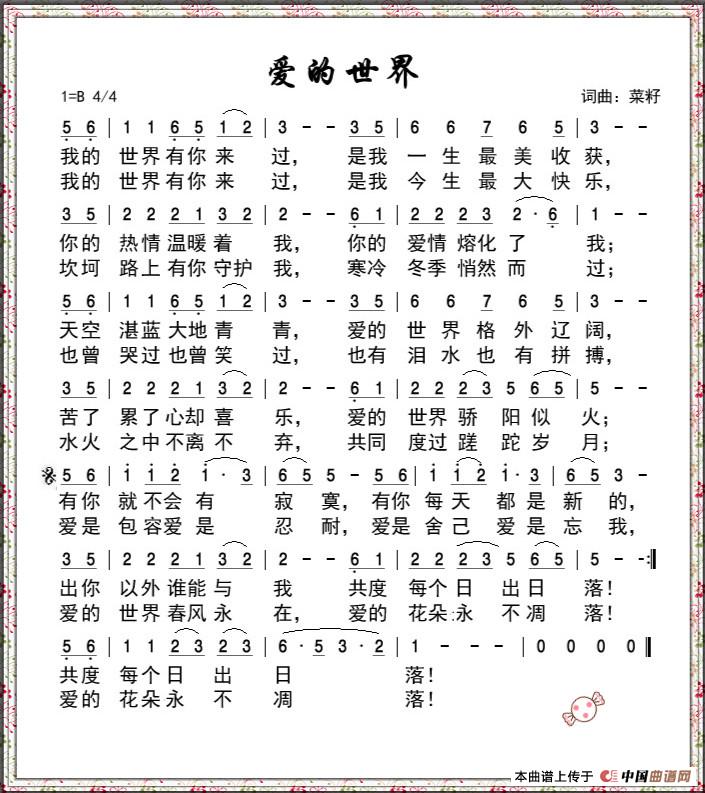 爱的世界
1=B 4/4 词曲：菜籽
5 6 | 1 1 6 5 1 2 | 3 - - 3 5 | 6 6 7 6 5 | 3 - -
我的 世界有你来 过， 是我 一生最美收获，
我的 世界有你来 过， 是我 今生最大快乐，
3 5 | 2 2 2 1 3 2 | 2 - - 6 1 | 2 2 2 3 2 · 6 | 1 - -
你的 热情温暖着 我， 你的 爱情熔化了 我；
坎坷 路上有你守护 我， 寒冷 冬季悄然而 过；
5 6 | 1 1 6 5 1 2 | 3 - - 3 5 | 6 6 7 6 5 | 3 - -
天空 湛蓝大地青 青， 爱的 世界格外辽阔，
也曾 哭过也曾笑 过， 也有 泪水也有拼搏，
3 5 | 2 2 2 1 3 2 | 2 - - 6 1 | 2 2 2 3 5 6 5 | 5 - -
苦了 累了心却喜 乐， 爱的 世界骄阳似 火；
水火 之中不离不 弃， 共同 度过蹉跎岁 月；
5 6 | 1 1 2 1 · 3 | 6 5 5 - 5 6 | 1 1 2 1 · 3 | 6 5 3 -
有你 就不会有 寂寞，有你 每天都是新的，
爱是 包容爱是 忍耐，爱是 舍己爱是忘我，
3 5 | 2 2 2 1 3 2 | 2 - - 6 1 | 2 2 2 3 5 6 5 | 5 - - :‖
出你 以外谁能与 我 共度 每个日出日 落！
爱的 世界春风永 在， 爱的 花朵永不凋 落！
5 6 | 1 1 2 3 2 3 | 6 · 5 3 · 2 | 1 - - - | 0 0 0 0 ‖
共度 每个日出 日 落！
爱的 花朵永不 凋 落！
本曲谱上传于 中国曲谱网